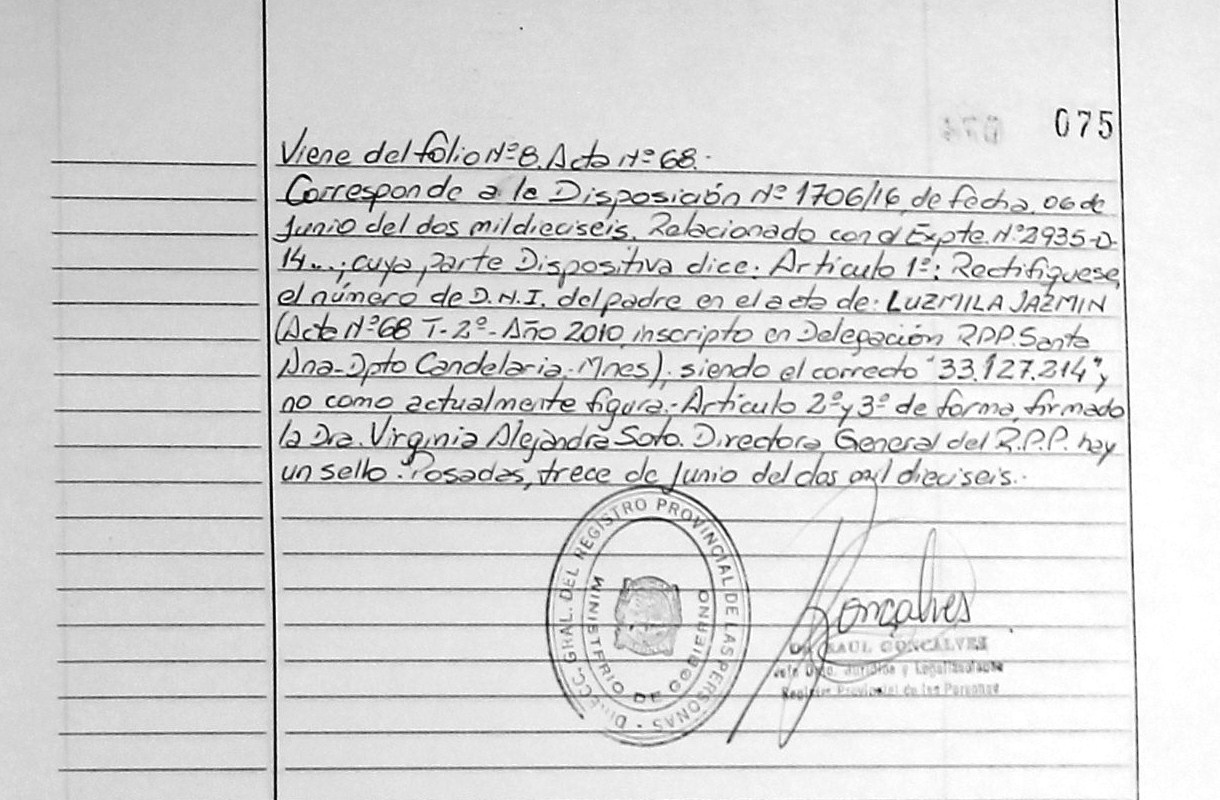 075
Viene del folio Nº 8. Acta Nº 68.-
Corresponde a la Disposición Nº 1706/16, de fecha, 06 de
Junio del dos mil dieciseis. Relacionado con el Expte. Nº 2935-D-
14...; cuya parte Dispositiva dice: Articulo 1º: Rectifiquese,
el número de D.N.I. del padre en el acta de: LUZMILA JAZMIN
(Acta Nº 68 T-2º-Año 2010, inscripto en Delegación RPP. Santa
Ana-Dpto Candelaria-Mnes). siendo el correcto "33.127.214", y
no como actualmente figura.- Articulo 2º y 3º de forma, firmado
la Dra. Virginia Alejandra Soto. Directora General del R.P.P. hay
un sello. Posadas, trece de Junio del dos mil dieciseis.-
GRAL. DEL REGISTRO PROVINCIAL DE LAS PERSONAS
MINISTERIO DE GOBIERNO
Goncalves
RAUL GONCALVES
Jurídica y
Registro Provincial de las Personas